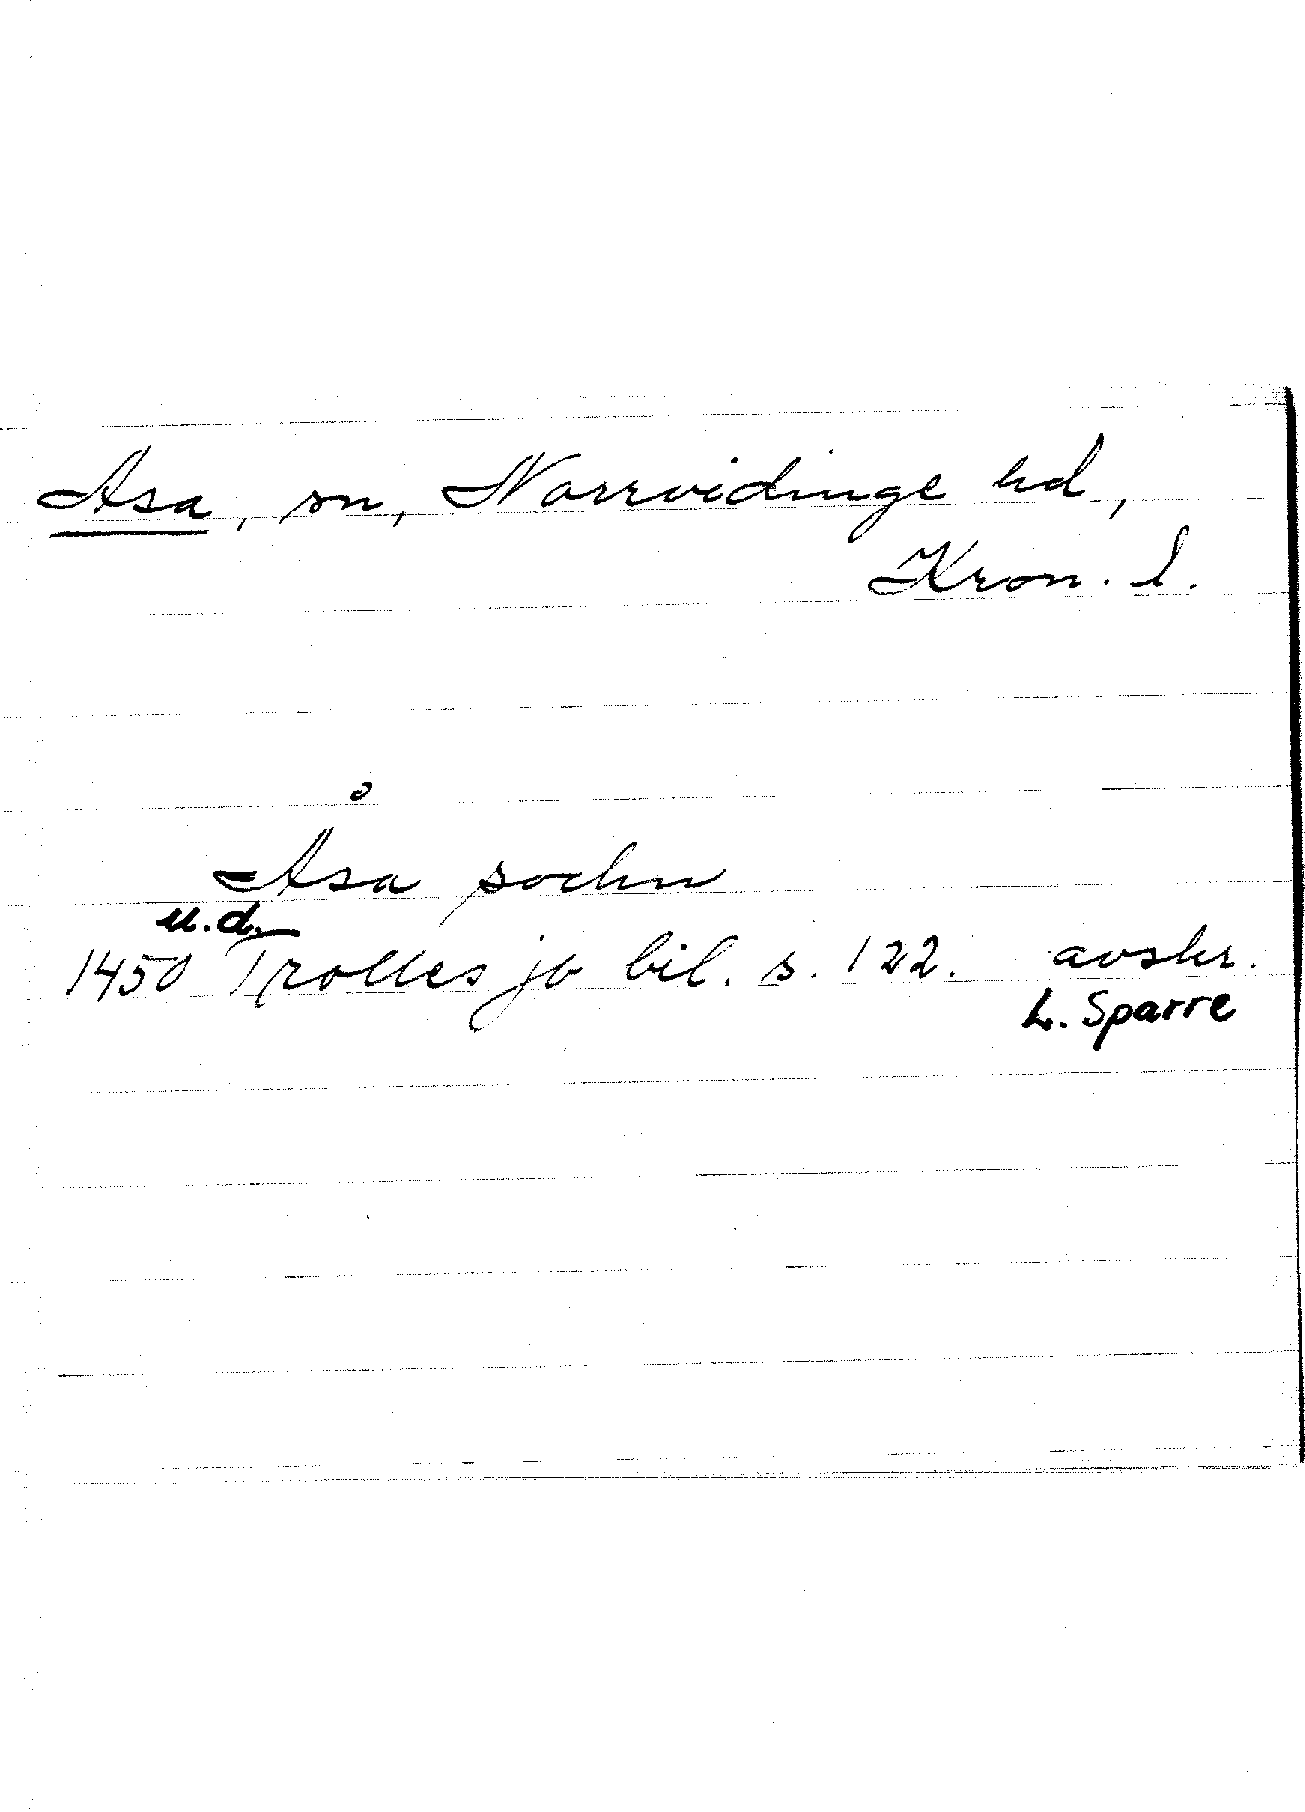 Asa, sn, Norrvidinge hd,
Kron. l.
Åsa sochn
u.d.
1450 Trolles jb bil. s. 122. avskr.
L. Sparre